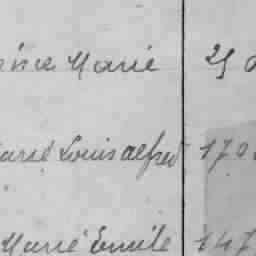 Marie 25
Marie Louis alfred 170
Marie Emile 147